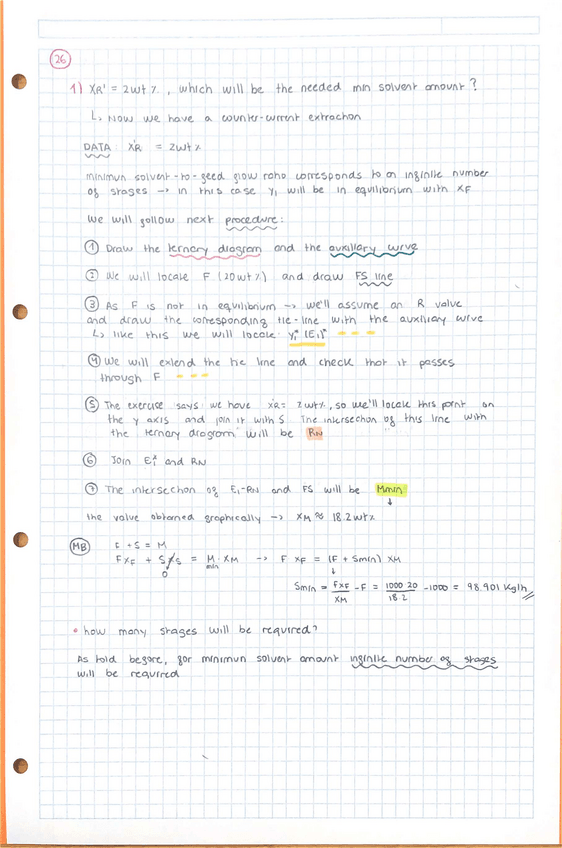 26
1) XR' = 2wt %, which will be the needed min solvent amount?
↳ Now we have a counter-current extraction
DATA XR' = 2wt%
minimun solvent-to-feed flow ratio corresponds to an infinite number
of stages → in this case y1 will be in equilibrium with XF
We will follow next procedure:
① Draw the ternary diagram and the auxiliary curve
② We will locate F (20wt%) and draw FS line
③ As F is not in equilibrium → we'll assume an R value
and draw the corresponding tie-line with the auxiliary curve
↳ like this we will locate y1* (E1)* ---
④ We will extend the tie line and check that it passes
through F ---
⑤ The exercise says we have XR' = 2wt%, so we'll locate this point on
the y axis and join it with S. The intersection of this line with
the ternary diagram will be RN
⑥ Join E1* and RN
⑦ The intersection of E1-RN and FS will be Mmin
↓
the value obtained graphically → XM ≈ 18.2wt%
MB F + S = M
FXF + SXS = Mmin · XM → F XF = (F + Smin) XM
0
↓
Smin = FXF/XM - F = 1000·20/18.2 - 1000 = 98.901 Kg/h
• how many stages will be required?
As told before, for minimun solvent amount infinite number of stages
will be required